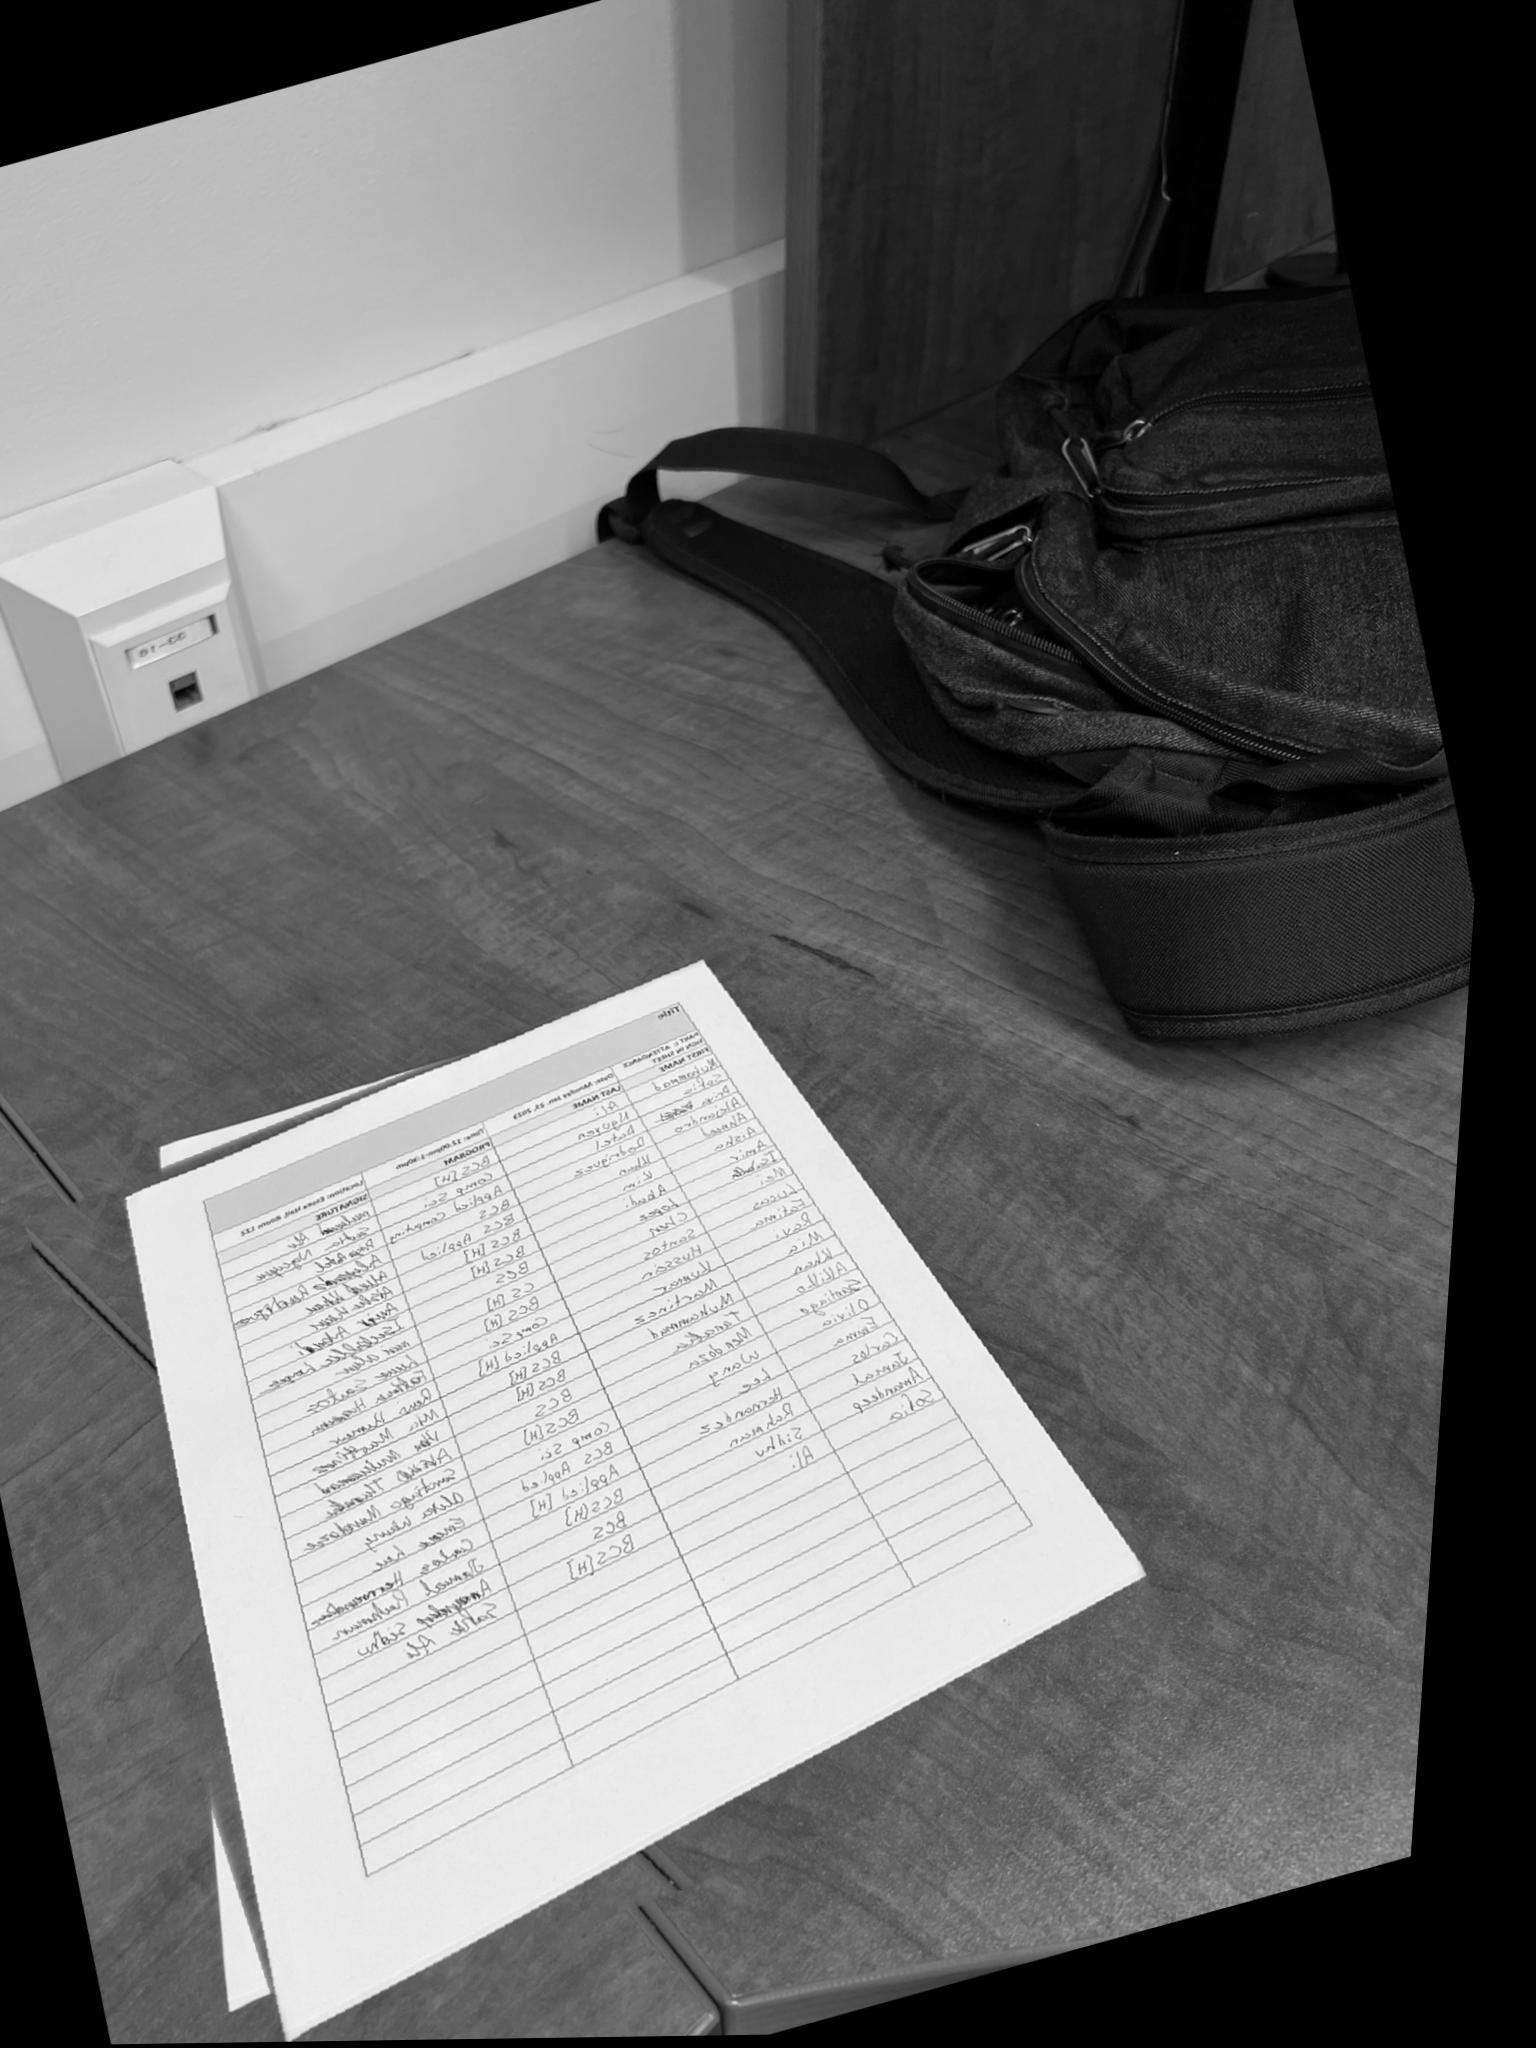 Title
PART I: ATTENDANCE SIGN IN SHEET Date: Monday Jan. 23, 2023 Time: 12:00pm-1:30pm Location: Essex Hall, Room 122
FIRST NAME LAST NAME PROGRAM SIGNATURE
Muhammad Ali BCS[H] Ali
Sofia Nguyen Comp Sci Sofia Nguyen
Priya Patel Applied Computing Priya Patel
Alejandro Rodriguez BCS Alejandro Rodriguez
Ahmed Khan BCS Applied Ahmed Khan
Aisha Kim BCS[H] Aisha
Amir Abadi BCS[H] Amir Abadi
Isabella Lopez BCS Isabella Lopez
Mei Chen CS [H]
Lucas Santos BCS[H] Santos
Fatima Hussain Comp Sci Fatima Hussain
Ravi Kumar Applied [H] Kumar
Mia Martinez BCS[H] Mia Martinez
Khan Muhammad BCS[H] Muhammad
BCS
Santiago Mendoza BCS[H] Santiago Mendoza
Olivia Wang Comp Sci Wang
Emma Lee BCS Applied Lee
Carlos Hernandez Applied [H] Carlos Hernandez
Jamal Rehman BCS[H] Jamal
Amandeep Sidhu BCS Amandeep Sidhu
Sofia Ali BCS[H] Ali